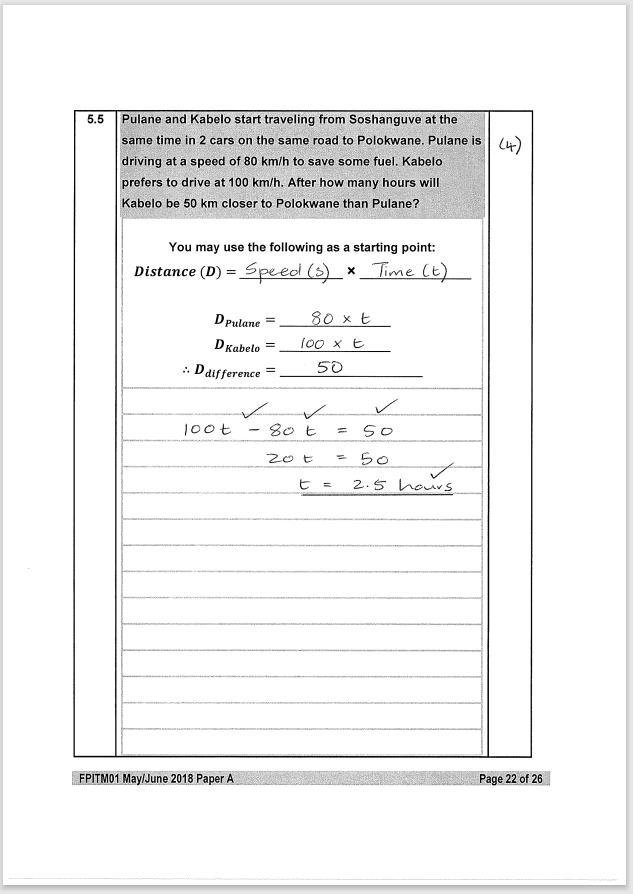 5.5 Pulane and Kabelo start traveling from Soshanguve at the
same time in 2 cars on the same road to Polokwane. Pulane is
driving at a speed of 80 km/h to save some fuel. Kabelo
prefers to drive at 100 km/h. After how many hours will
Kabelo be 50 km closer to Polokwane than Pulane?
(4)
You may use the following as a starting point:
Distance (D) = Speed (s) × Time (t)
D Pulane = 80 × t
D Kabelo = 100 × t
∴ D difference = 50
100t - 80t = 50
20t = 50
t = 2.5 hours
FPITM01 May/June 2018 Paper A Page 22 of 26